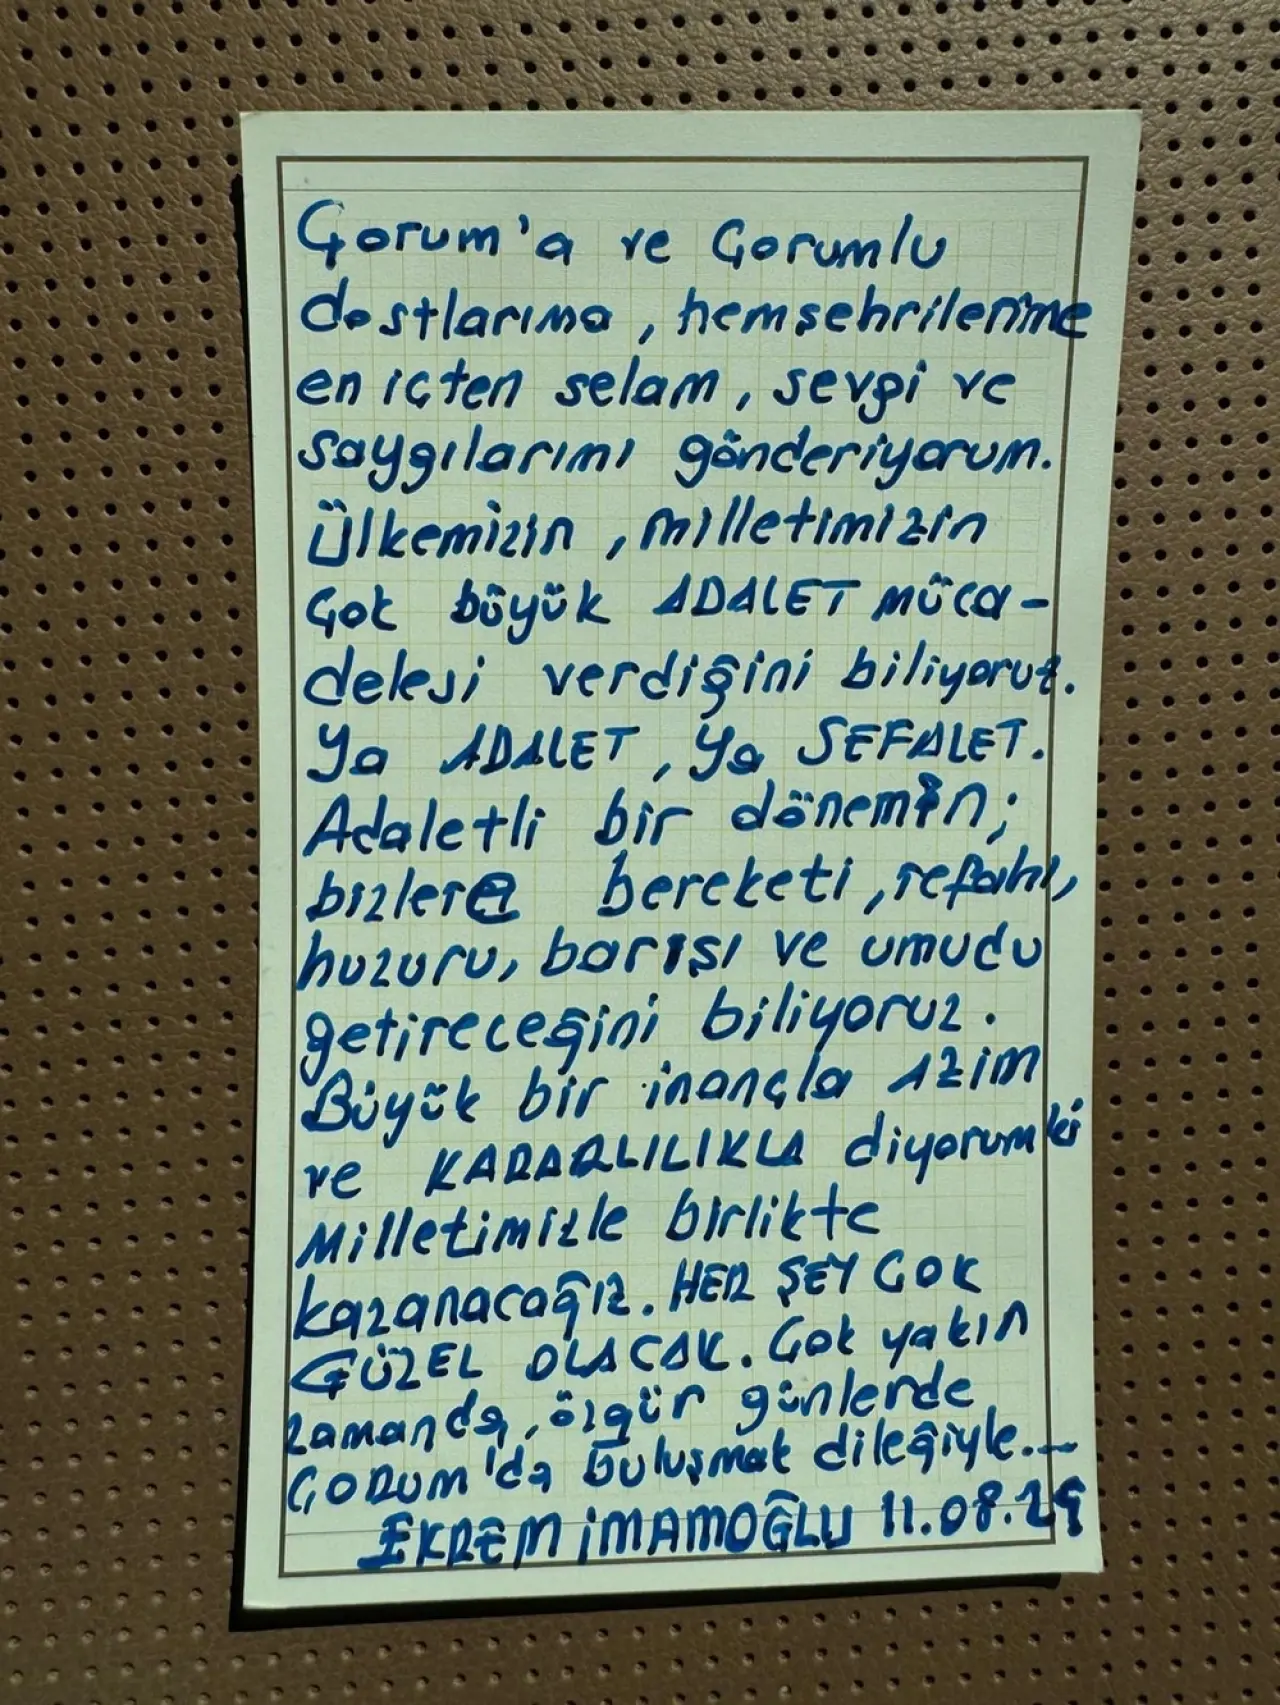 Çorum'a ve Çorumlu
dostlarıma, hemşehrilerime
en içten selam, sevgi ve
saygılarımı gönderiyorum.
Ülkemizin, milletimizin
Çok büyük ADALET müca-
delesi verdiğini biliyoruz.
Ya ADALET, Ya SEFALET.
Adaletli bir dönemin;
bizlere bereketi, refahı,
huzuru, barışı ve umudu
getireceğini biliyoruz.
Büyük bir inançla AZİM
ve KARARLILIKLA diyorum ki
Milletimizle birlikte
kazanacağız. HER ŞEY ÇOK
GÜZEL OLACAK. Çok yakın
zamanda, özgür günlerde
ÇORUM'da buluşmak dileğiyle...
EKREM İMAMOĞLU 11.08.25